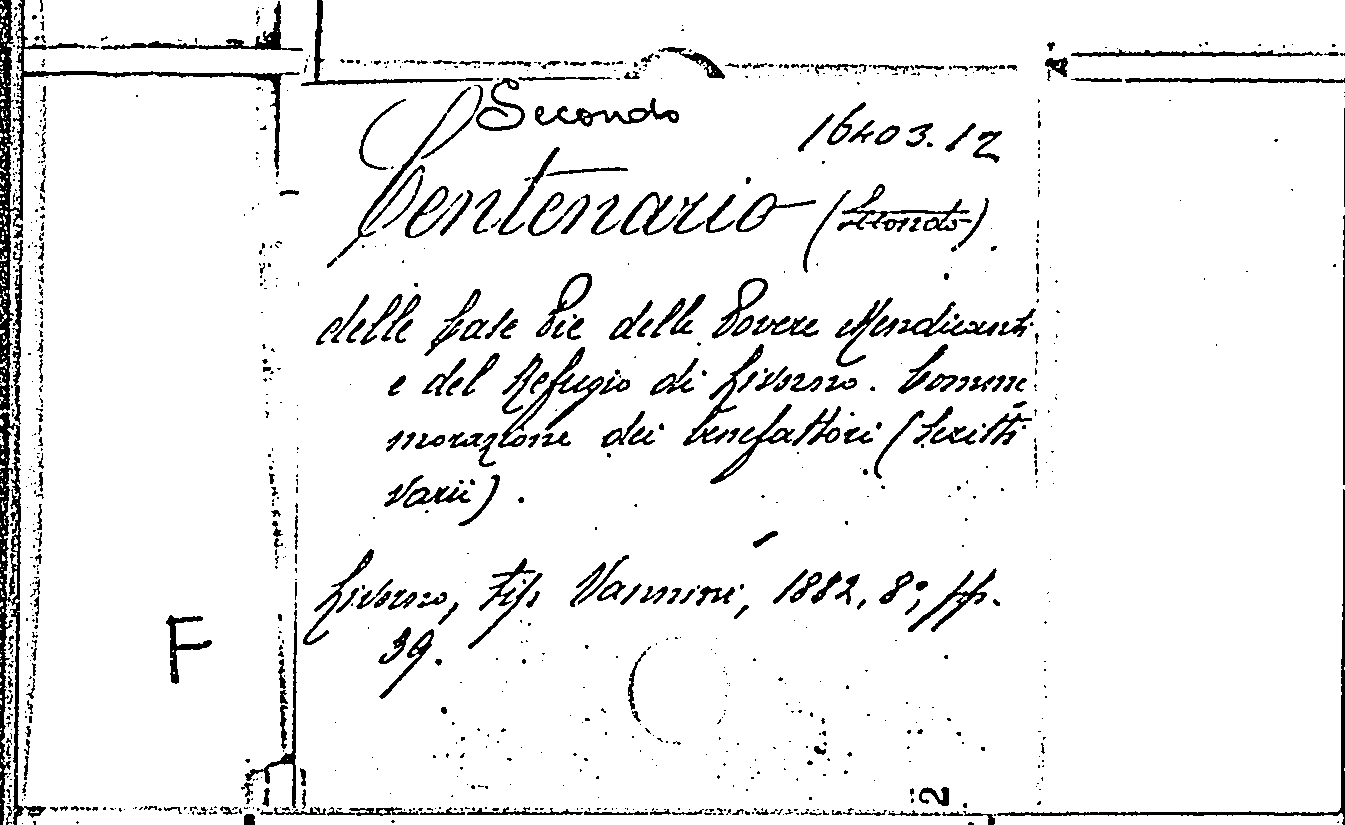 Secondo
16403.12
Centenario (Secondo)
delle Case Pie delle Povere Mendicanti
e del Refugio di Livorno. Comme
morazione dei benefattori (Scritti
varii).
Livorno, tip Vannini, 1882, 8°, pp.
39.
F
2